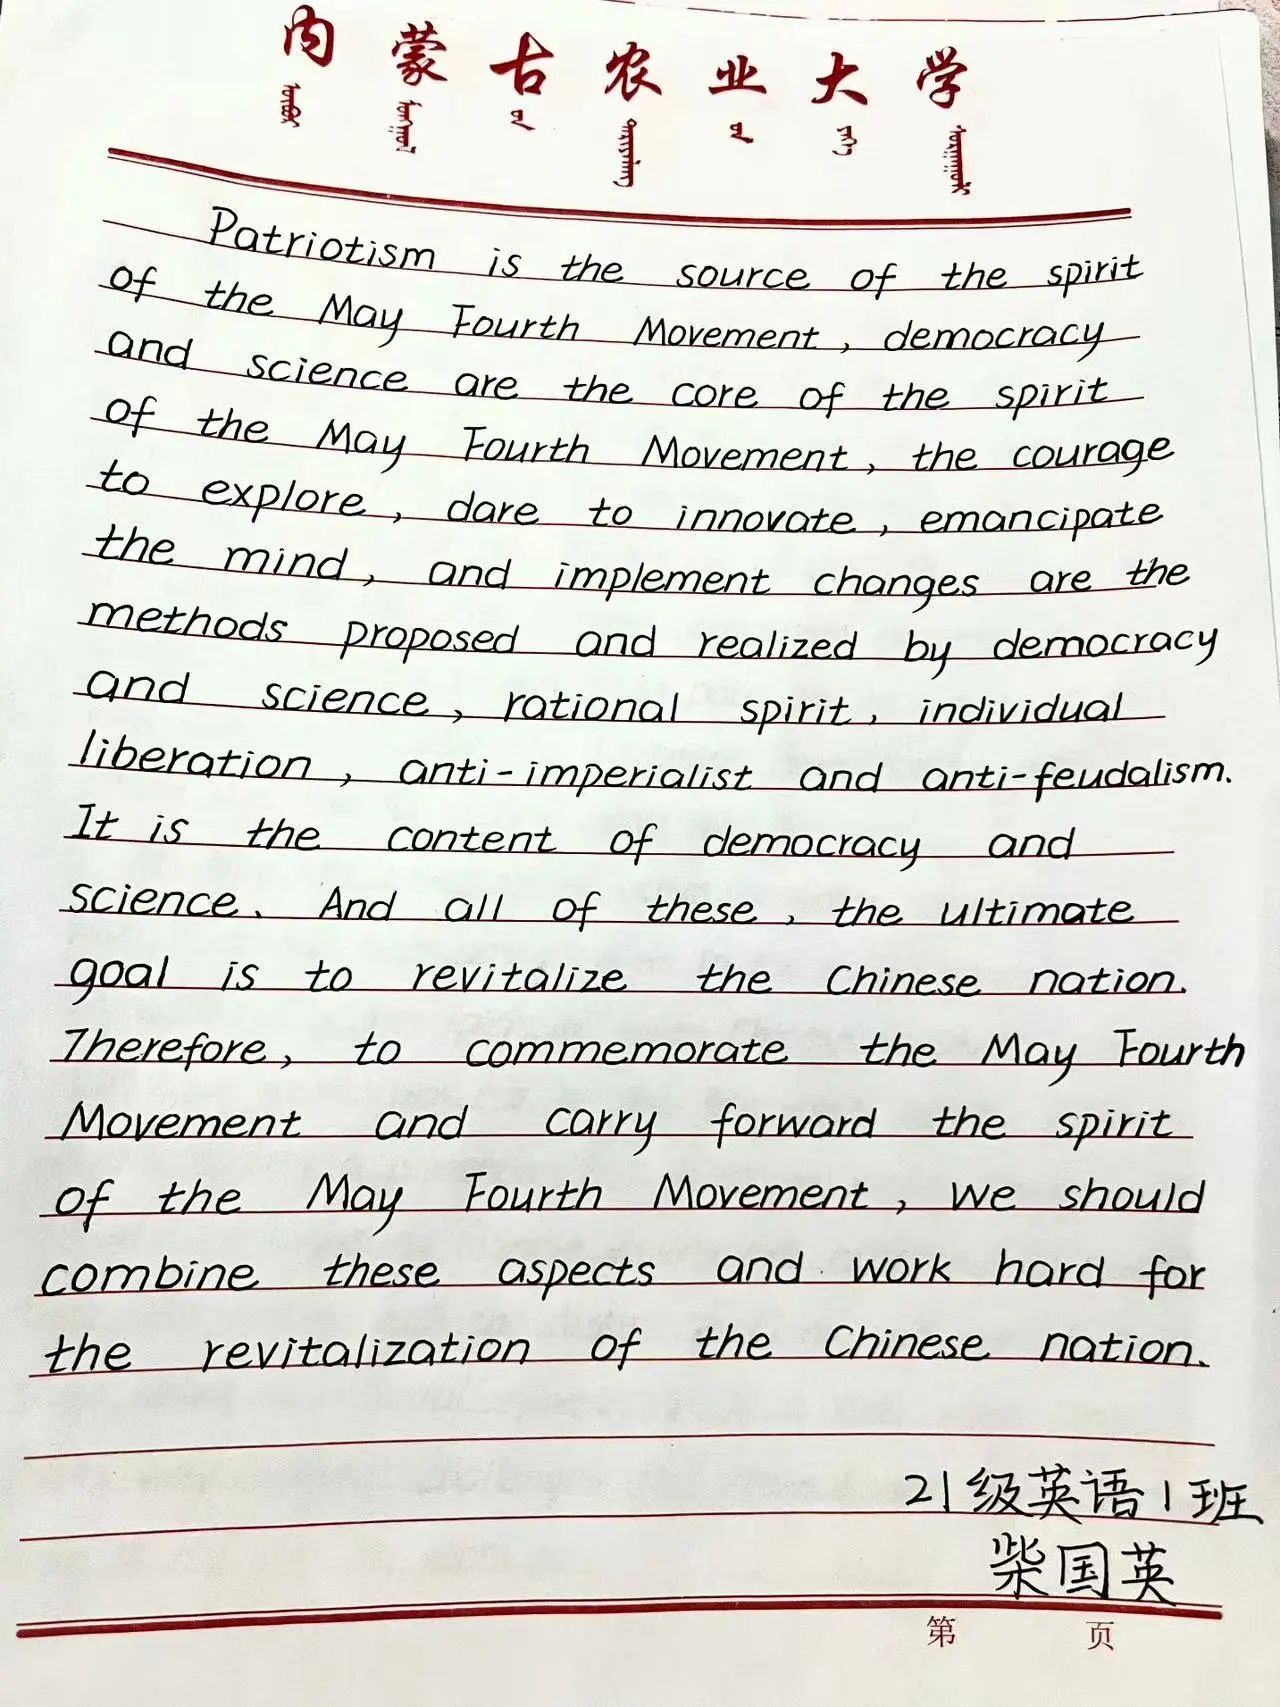 内蒙古农业大学
Patriotism is the source of the spirit
of the May Fourth Movement, democracy
and science are the core of the spirit
of the May Fourth Movement, the courage
to explore, dare to innovate, emancipate
the mind, and implement changes are the
methods proposed and realized by democracy
and science, rational spirit, individual
liberation, anti-imperialist and anti-feudalism.
It is the content of democracy and
science. And all of these, the ultimate
goal is to revitalize the Chinese nation.
Therefore, to commemorate the May Fourth
Movement and carry forward the spirit
of the May Fourth Movement, we should
combine these aspects and work hard for
the revitalization of the Chinese nation.
21级英语1班
柴国英
第 页